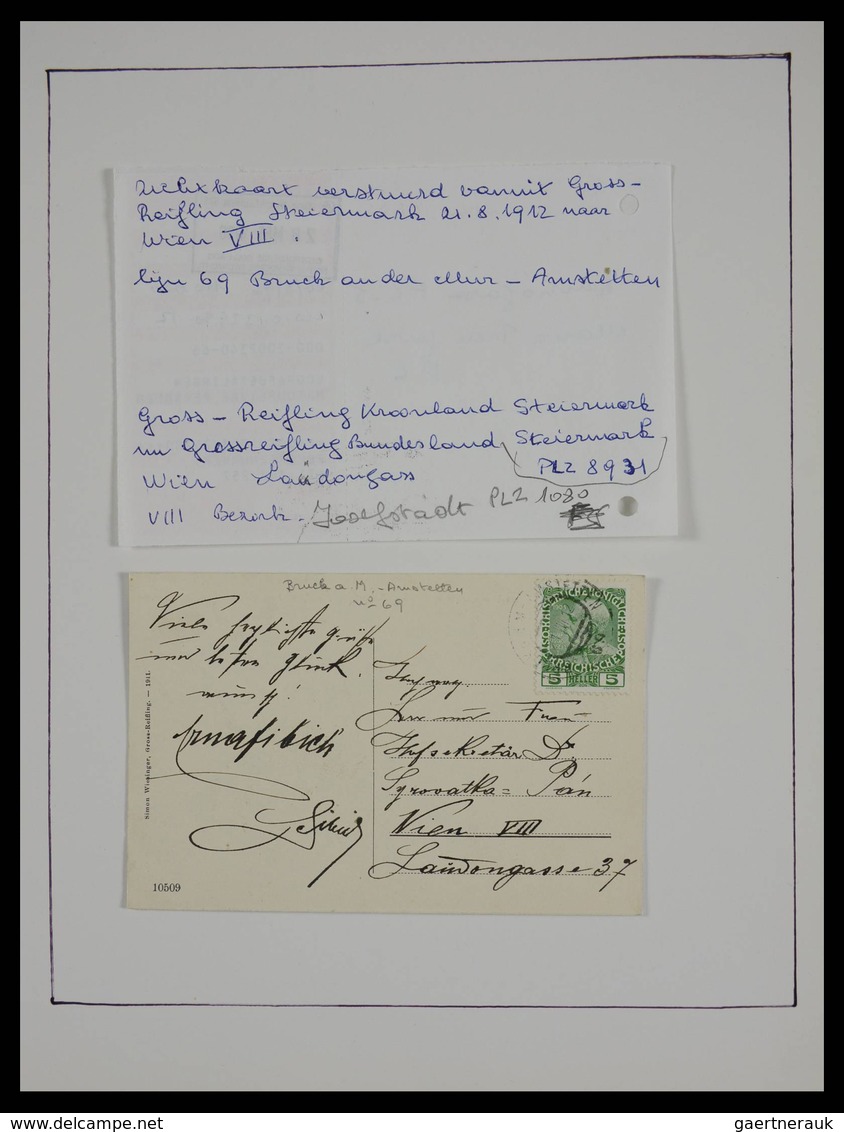 Zichtkaart verstuurd vanuit Gross-
Reifling Steiermark 21.8.1912 naar
Wien VIII.
lijn 69 Bruck an der Mur - Amstetten
Gross - Reifling Kroonland Steiermark
nu Grossreifling Bundesland Steiermark
PLZ 8931
Wien Laudongass
VIII Bezirk. Josefstadt PLZ 1080
Bruck a. M. - Amstetten
no 69
Viele herzlichste Grüße
und besten Glück.
wunsch!
5 HELLER 5
Herr und Frau
Hofsekretär Dr
Syrovatka = Pán
Wien VIII
Laudongasse 37
Simon Wiesinger, Gross-Reifling. — 1911.
10509
www.delcampe.net
gaertnerauk